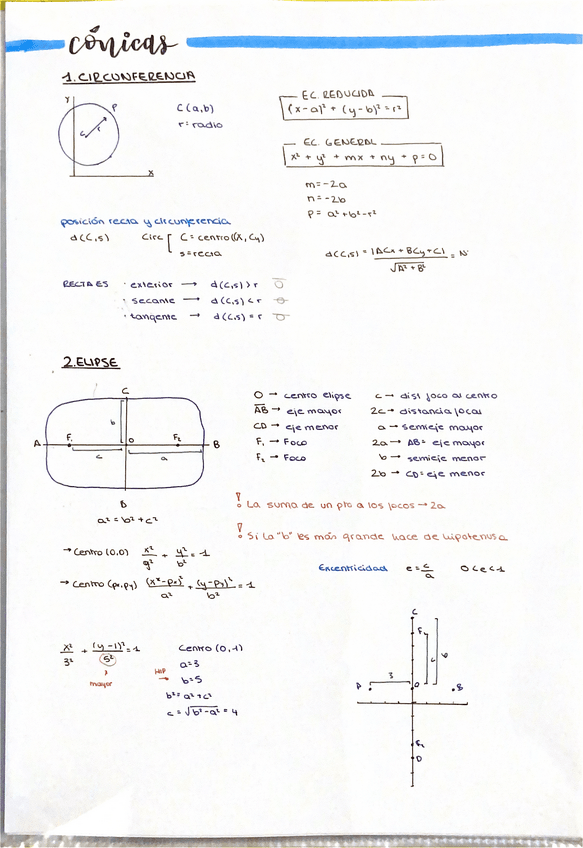 cónicas
1. CIRCUNFERENCIA
Y
P
C
r
X
C(a,b)
r = radio
EC. REDUCIDA
(x-a)² + (y-b)² = r²
EC. GENERAL
x² + y² + mx + ny + p = 0
m = -2a
n = -2b
p = a² + b² - r²
posición recta y circunferencia
d(C,s) Circ [ C = centro (Cx, Cy)
s = recta
d(C,s) = |ACx + BCy + C| / √A² + B² = Nº
RECTA ES · exterior → d(C,s) > r
· secante → d(C,s) < r
· tangente → d(C,s) = r
2. ELIPSE
C
b
A F₁ O F₂ B
c a
D
a² = b² + c²
O → centro elipse
AB → eje mayor
CD → eje menor
F₁ → Foco
F₂ → Foco
c → dist foco al centro
2c → distancia focal
a → semieje mayor
2a → AB = eje mayor
b → semieje menor
2b → CD = eje menor
! La suma de un pto a los focos → 2a
! Si la "b" es más grande hace de hipotenusa
→ Centro (0,0) x²/a² + y²/b² = 1
→ Centro (px,py) (x-px)²/a² + (y-py)²/b² = 1
Excentricidad e = c/a 0 < e < 1
x²/3² + (y-1)²/5² = 1
mayor
Centro (0,1)
a = 3
HIP → b = 5
b² = a² + c²
c = √b² - a² = 4
C
F₁
c
b
3
A O B
F₂
D